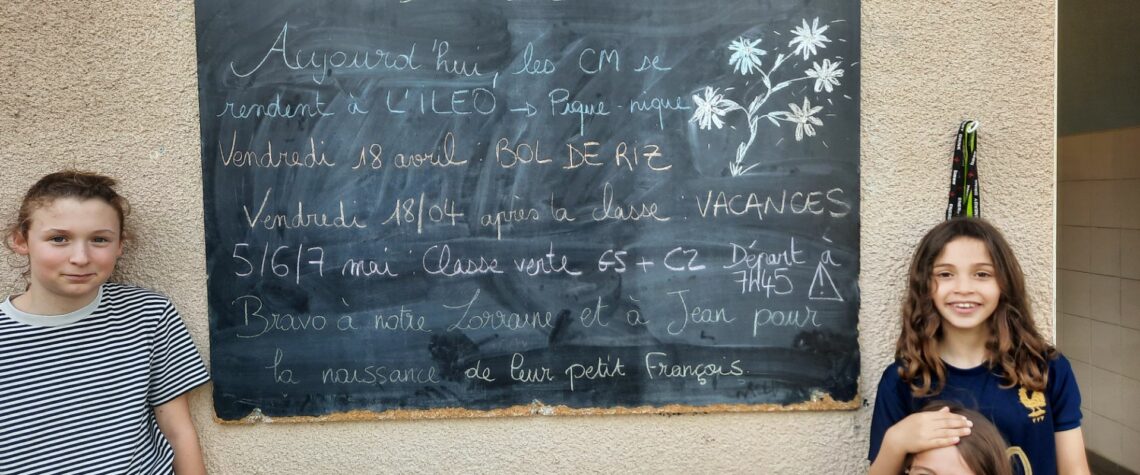 Aujourd'hui, les CM se
rendent à L'ILEO → Pique-nique
Vendredi 18 avril : BOL DE RIZ
Vendredi 18/04 après la classe : VACANCES
5/6/7 mai : Classe verte GS + C2 Départ à
7H45 !
Bravo à notre Lorraine et à Jean pour
la naissance de leur petit François.